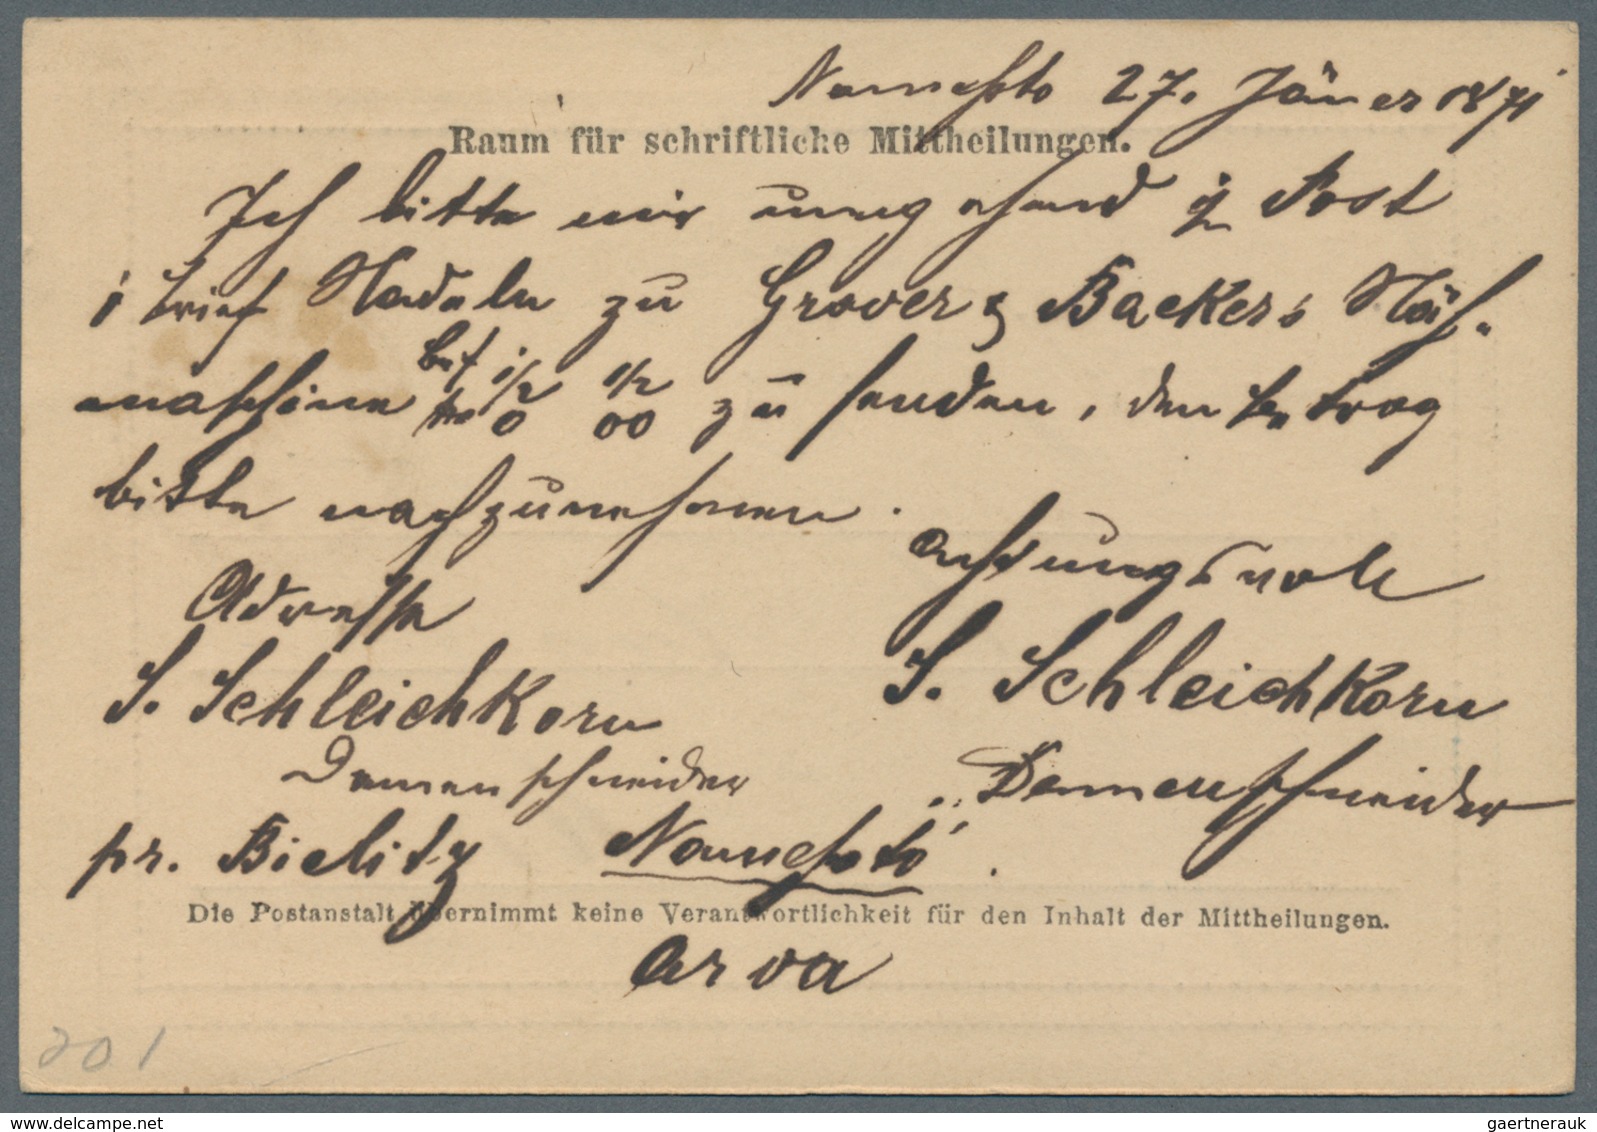 Namesto 27. Jäner 1871
Raum für schriftliche Mittheilungen.
Ich bitte mir umgehend Post
1 Brief Nadeln zu Grover & Backers Näh-
maschine 1/2 0 1/2 00 zu senden, den Betrag
bitte nachzunehmen.
achtungsvoll
Adresse
S. Schleichkorn
S. Schleichkorn
Damenschneider
Damenschneider
pr. Bielitz Namesto.
Die Postanstalt übernimmt keine Verantwortlichkeit für den Inhalt der Mittheilungen.
Arva
201
delcampe.net
gaertnerauk